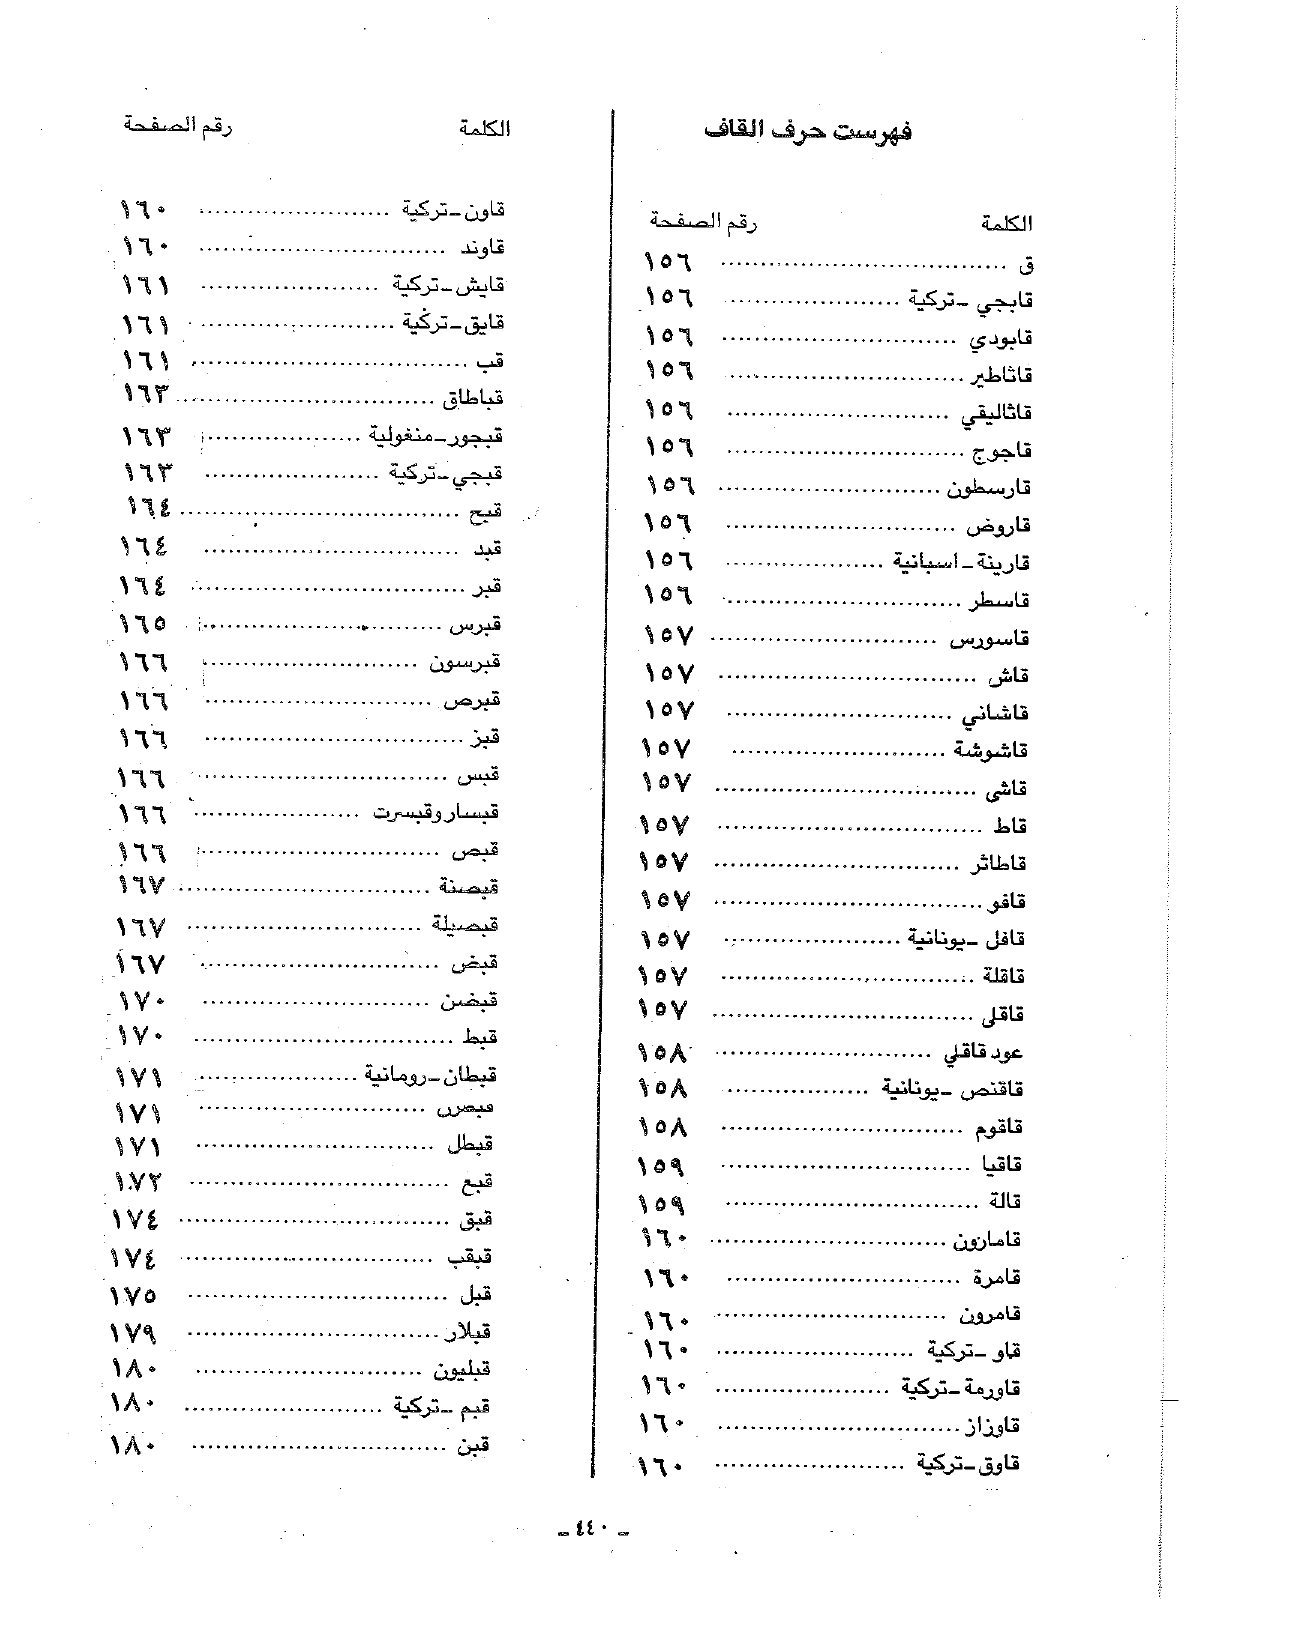 فهرست حرف القاف
الكلمة رقم الصفحة
ق ١٥٦
قابجي ـ تركية ١٥٦
قابودي ١٥٦
قاثاطير ١٥٦
قاثاليقي ١٥٦
قاجوج ١٥٦
قارسطون ١٥٦
قاروض ١٥٦
قارينة ـ اسبانية ١٥٦
قاسطر ١٥٦
قاسورس ١٥٧
قاش ١٥٧
قاشاني ١٥٧
قاشوشة ١٥٧
قاشى ١٥٧
قاط ١٥٧
قاطاثر ١٥٧
قافو ١٥٧
قافل ـ يونانية ١٥٧
قاقلة ١٥٧
قاقلى ١٥٧
عود قاقلي ١٥٨
قاقنص ـ يونانية ١٥٨
قاقوم ١٥٨
قاقيا ١٥٩
قالة ١٥٩
قامارون ١٦٠
قامرة ١٦٠
قامرون ١٦٠
قاو ـ تركية ١٦٠
قاورمة ـ تركية ١٦٠
قاوزاز ١٦٠
قاوق ـ تركية ١٦٠
الكلمة رقم الصفحة
قاون ـ تركية ١٦٠
قاوند ١٦٠
قايش ـ تركية ١٦١
قايق ـ تركية ١٦١
قب ١٦١
قباطاق ١٦٣
قبجور ـ منغولية ١٦٣
قبجي ـ تركية ١٦٣
قبح ١٦٤
قبد ١٦٤
قبر ١٦٤
قبرس ١٦٥
قبرسون ١٦٦
قبرص ١٦٦
قبز ١٦٦
قبس ١٦٦
قبسار وقبسرت ١٦٦
قبص ١٦٦
قبصنة ١٦٧
قبصيلة ١٦٧
قبض ١٦٧
قبضن ١٧٠
قبط ١٧٠
قبطان ـ رومانية ١٧١
١٧١
قبطل ١٧١
قبع ١٧٢
قبق ١٧٤
قبقب ١٧٤
قبل ١٧٥
قبلار ١٧٩
قبليون ١٨٠
قبم ـ تركية ١٨٠
قبن ١٨٠
ـ ٤٤٠ ـ